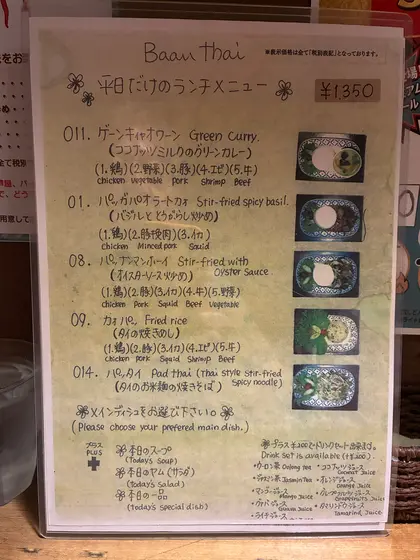 Baan thai
※表示価格は全て「税別表記」となっております。
平日だけのランチメニュー
¥1,350
011. ゲーンキャオワーン Green Curry.
(ココナッツミルクのグリーンカレー)
(1.鶏)(2.野菜)(3.豚)(4.エビ)(5.牛)
Chicken Vegetable Pork Shrimp Beef
01. パッガパオラートカオ Stir-fried spicy basil.
(バジルととうがらし炒め)
(1.鶏)(2.豚挽肉)(3.イカ)
Chicken Minced pork Squid
08. パッナンマンホーイ Stir-fried with
(オイスターソース炒め) Oyster Sauce
(1.鶏)(2.豚)(3.イカ)(4.牛)(5.野菜)
Chicken Pork Squid Beef Vegetable
09. カオパッ Fried rice
(タイの焼きめし)
(1.鶏)(2.豚)(3.イカ)(4.エビ)(5.牛)
Chicken Pork Squid Shrimp Beef
014. パッタイ Pad thai (thai style Stir-fried
(タイのお米麺の焼きそば) Spicy noodle)
メインディッシュをお選び下さい。
(Please choose your prefered main dish.)
プラス
PLUS
+
本日のスープ
(Today's Soup)
本日のヤム(サラダ)
(Today's Salad)
本日の一品
(Today's Special dish)
プラス¥200でドリンクセット出来ます。
Drink Set is available (+¥200).
・ウーロン茶 Oolong Tea
・ジャスミン茶 Jasmin Tea
・マンゴージュース
Mango Juice
・グァバジュース
Guava Juice
・ライチジュース
・ココナッツジュース
Coconut Juice
・オレンジジュース
Orange Juice
・グレープフルーツジュース
Grapefruits Juice
・タマリンドジュース
Tamarind Juice